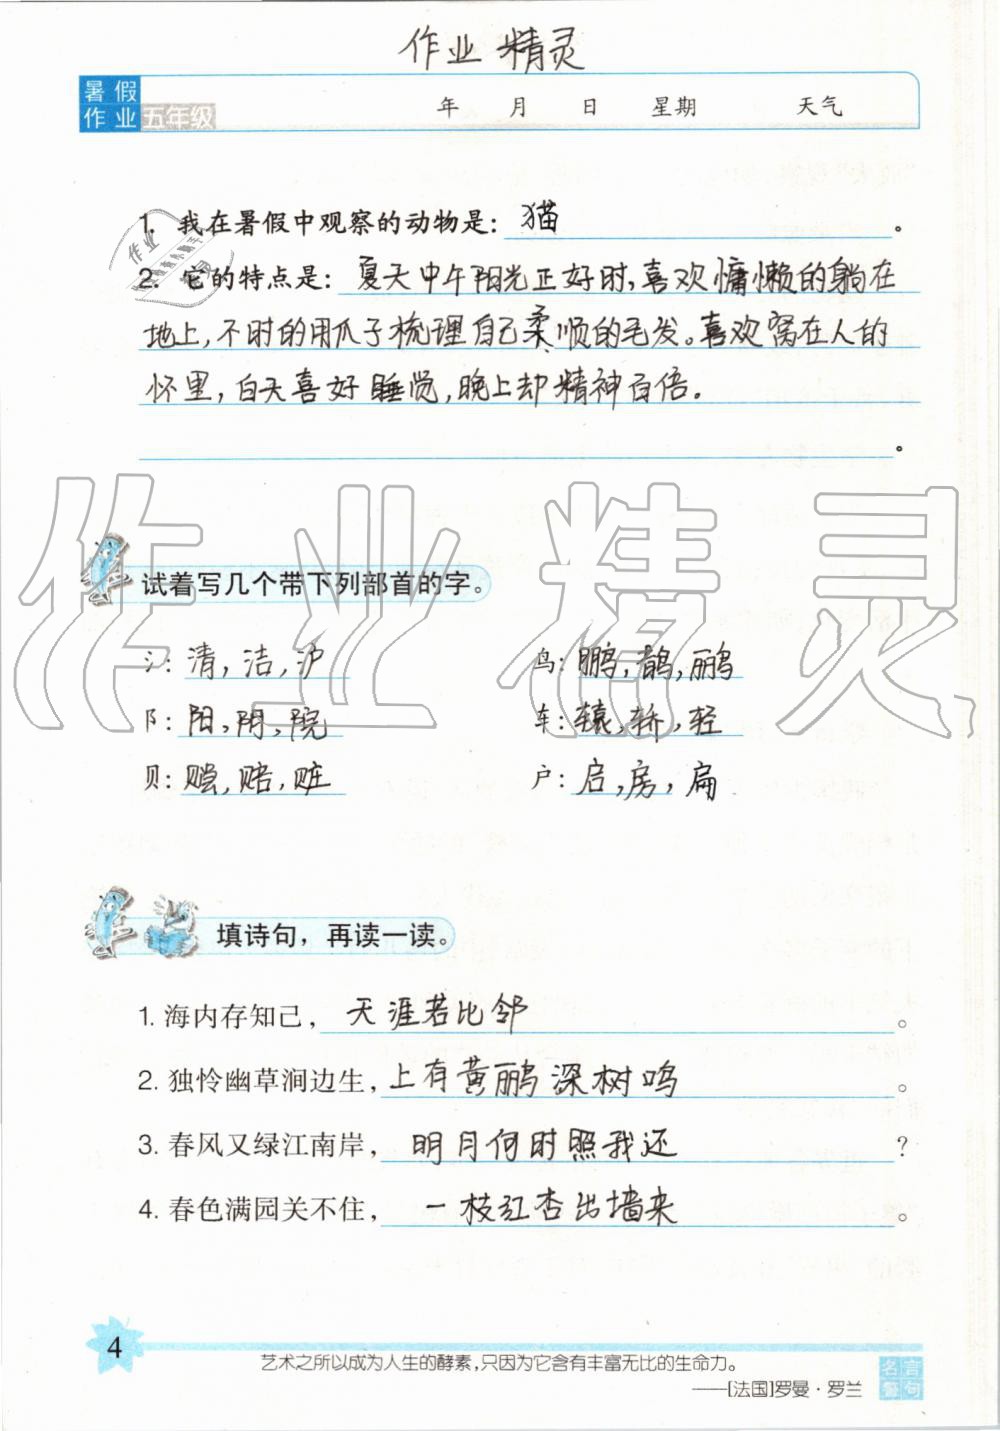 作业精灵
暑假
作业 五年级
年 月 日 星期 天气
1. 我在暑假中观察的动物是：猫。
2. 它的特点是：夏天中午阳光正好时，喜欢慵懒的躺在
地上，不时的用爪子梳理自己柔顺的毛发。喜欢窝在人的
怀里，白天喜好睡觉，晚上却精神百倍。
。
作业精灵
试着写几个带下列部首的字。
氵：清，洁，沪
鸟：鹏，鹊，鹂
阝：阳，阴，院
车：辕，轿，轻
贝：赡，赔，赃
户：启，房，扁
填诗句，再读一读。
1. 海内存知己，天涯若比邻。
2. 独怜幽草涧边生，上有黄鹂深树鸣。
3. 春风又绿江南岸，明月何时照我还？
4. 春色满园关不住，一枝红杏出墙来。
4
艺术之所以成为人生的酵素，只因为它含有丰富无比的生命力。
——[法国]罗曼·罗兰
名言
警句